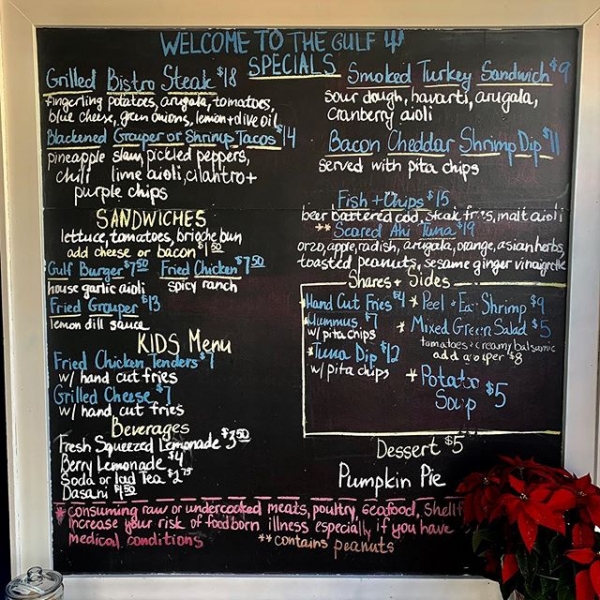 WELCOME TO THE GULF
SPECIALS
Grilled Bistro Steak $18
fingerling potatoes, arugala, tomatoes,
blue cheese, green onions, lemon + olive oil
Blackened Grouper or Shrimp Tacos $14
pineapple slaw, pickled peppers,
chili lime aioli, cilantro +
purple chips
SANDWICHES
lettuce, tomatoes, brioche bun
add cheese or bacon $1.50
Gulf Burger $7.50 Fried Chicken $7.50
house garlic aioli spicy ranch
Fried Grouper $13
lemon dill sauce
KIDS Menu
Fried Chicken Tenders $7
w/ hand cut fries
Grilled Cheese $7
w/ hand cut fries
Beverages
Fresh Squeezed Lemonade $3.50
Berry Lemonade $4
Soda or Iced Tea $2.75
Dasani
Smoked Turkey Sandwich $9
sour dough, havarti, arugala,
cranberry aioli
Bacon Cheddar Shrimp Dip $11
served with pita chips
Fish + Chips $15
beer battered cod, steak fries, malt aioli
**Seared Ahi Tuna $19
orzo, apple, radish, arugala, orange, asian herbs,
toasted peanuts, sesame ginger vinaigrette
Shares + Sides
Hand Cut Fries $4 * Peel + Eat Shrimp $9
*Hummus $7 * Mixed Green Salad $5
w/ pita chips tomatoes + creamy balsamic
*Tuna Dip $12 add grouper $8
w/ pita chips * Potato
Soup $5
Dessert $5
Pumpkin Pie
*consuming raw or undercooked meats, poultry, seafood, Shellf
increase your risk of foodborn illness especially if you have
Medical conditions **contains peanuts